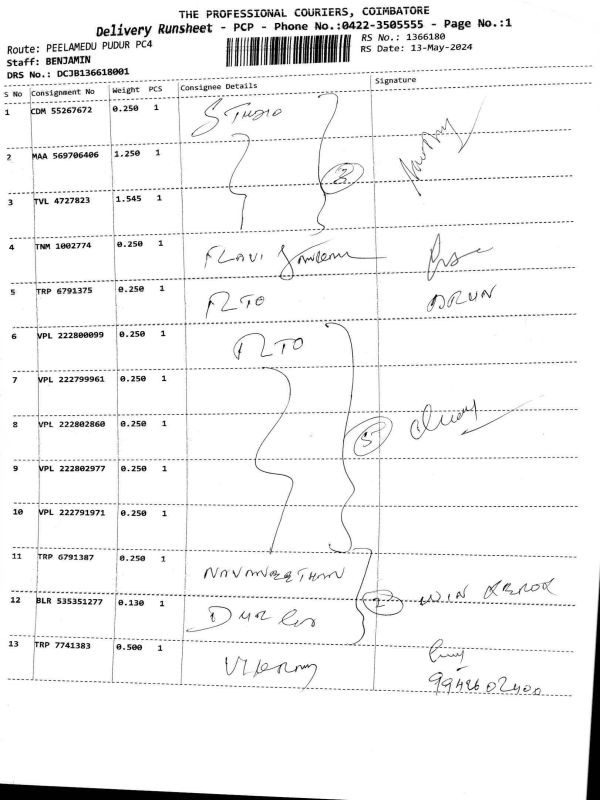 THE PROFESSIONAL COURIERS, COIMBATORE
Delivery Runsheet - PCP - Phone No.:0422-3505555 - Page No.:1
Route: PEELAMEDU PUDUR PC4
RS No.: 1366180
Staff: BENJAMIN
RS Date: 13-May-2024
DRS No.: DCJB136618001
S No Consignment No Weight PCS Consignee Details Signature
1 CDM 55267672 0.250 1 STUDIO
2 MAA 569706406 1.250 1 3
3 TVL 4727823 1.545 1
4 TNM 1002774 0.250 1
5 TRP 6791375 0.250 1 RTO ARUN
6 VPL 222800099 0.250 1 RTO
7 VPL 222799961 0.250 1
8 VPL 222802860 0.250 1 5
9 VPL 222802977 0.250 1
10 VPL 222791971 0.250 1
11 TRP 6791387 0.250 1 NAVANEETHAN
12 BLR 535351277 0.130 1 2 WIN
13 TRP 7741383 0.500 1
9942602400